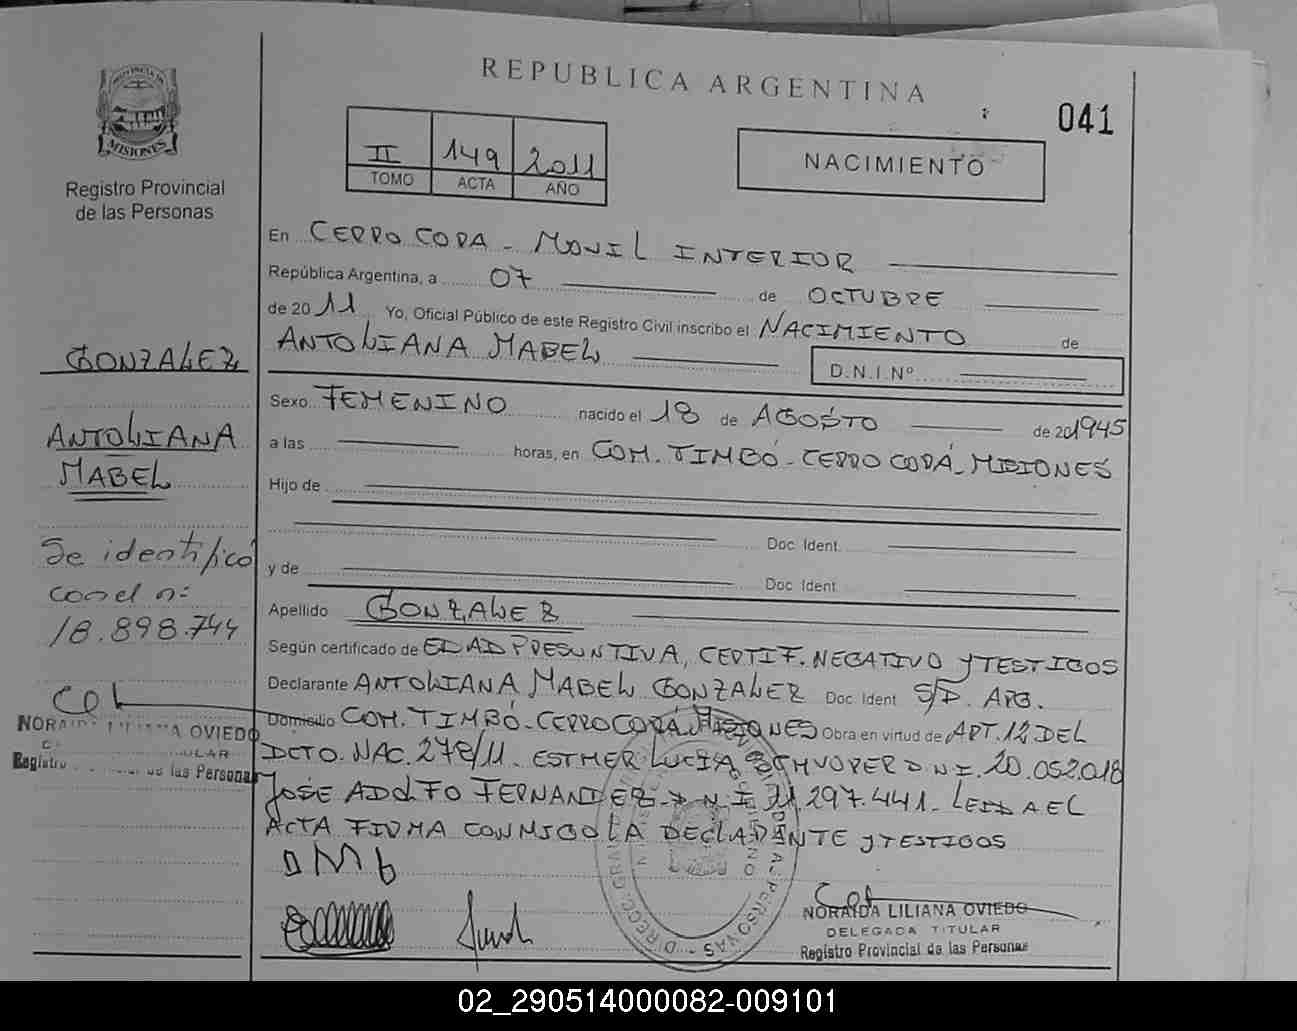 REPUBLICA ARGENTINA
041
PROVINCIA DE
MISIONES
Registro Provincial
de las Personas
II 149 2011
TOMO ACTA AÑO
NACIMIENTO
En CERRO CORA - MOVIL INTERIOR
República Argentina, a 07 de OCTUBRE
de 2011 Yo, Oficial Público de este Registro Civil inscribo el NACIMIENTO de
ANTOLIANA MABEL
D.N.I.Nº
Sexo FEMENINO nacido el 18 de AGOSTO de 201945
a las horas, en COM. TIMBÓ - CERRO CORÁ - MISIONES
Hijo de
Doc. Ident.
y de
Doc. Ident.
Apellido GONZALEZ
Según certificado de EDAD PRESUNTIVA, CERTIF. NEGATIVO y TESTIGOS
Declarante ANTOLIANA MABEL GONZALEZ Doc. Ident S/P. ARG.
Domicilio COM. TIMBÓ - CERRO CORÁ MISIONES Obra en virtud de ART. 12 DEL
DCTO. NAC. 278/11. ESTHER LUCIA D N I. 20.052.018
JOSÉ ADOLFO FERNANDEZ D N I 11.297.441. LEIDA EL
ACTA FIRMA CONMIGO LA DECLARANTE y TESTIGOS
GONZALEZ
ANTOLIANA
MABEL
Se identificó
con el n:
18.898.744
NORAIDA LILIANA OVIEDO
TITULAR
Registro Provincial de las Personas
OMG
NORAIDA LILIANA OVIEDO
DELEGADA TITULAR
Registro Provincial de las Personas
02_290514000082-009101